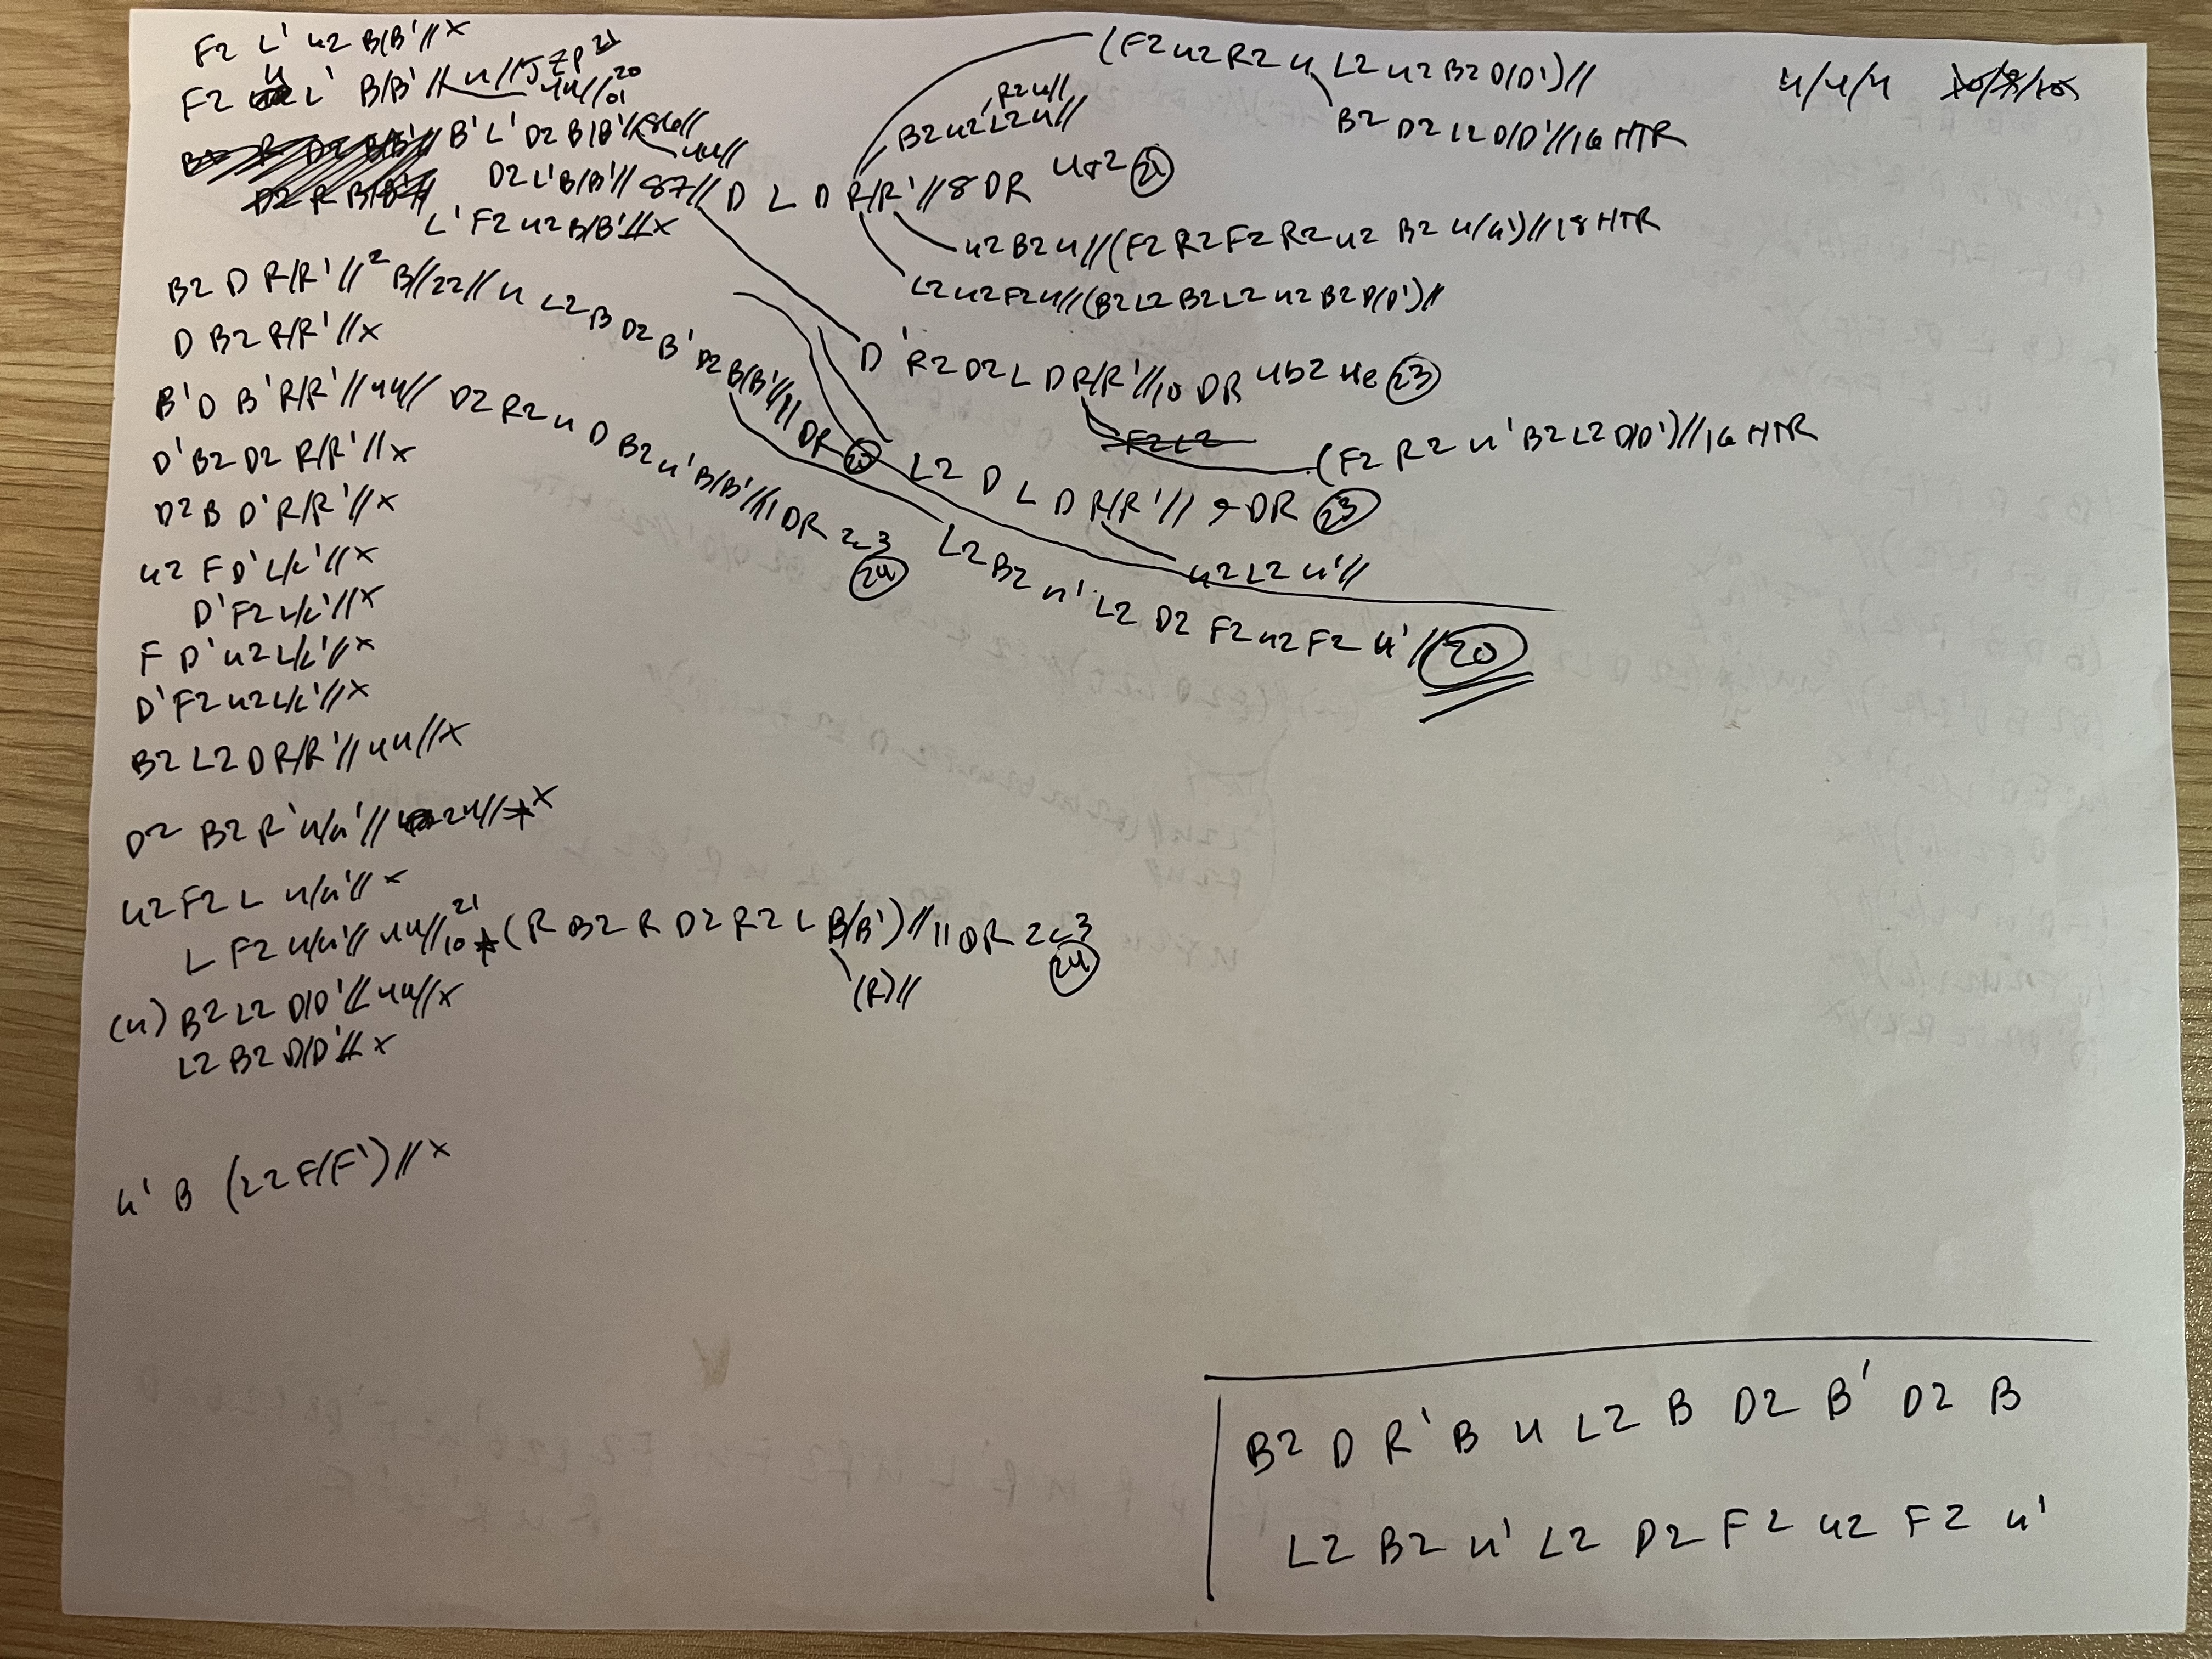 F2 L' u2 B/B'//x
F2 u L' B/B'// u//
u4//
B' L' D2 B/B'//86//
u4//
D2 L' B/B'// 87// D L D R/R'//8 DR 4r2 21
L' F2 u2 B/B'//x
(F2 u2 R2 u L2 u2 B2 D/D')//
B2 D2 L2 D/D'//16 HTR
4/4/4
R2 u//
B2 u2 L2 u//
u2 B2 u//(F2 R2 F2 R2 u2 B2 u/u')//18 HTR
L2 u2 F2 u//(B2 L2 B2 L2 u2 B2 D/D')//
B2 D R/R'//2 B//22// u L2 B D2 B' D2 B/B'//11 DR 20
D B2 R/R'//x
D' R2 D2 L D R/R'//10 DR 4b2 He 23
F2 L2
(F2 R2 u' B2 L2 D/D')//16 HTR
B' D B' R/R'//44// D2 R2 u D B2 u' B/B'//11 DR 2c3
24
L2 D L D R/R'// 9 DR 23
u2 L2 u'//
L2 B2 u' L2 D2 F2 u2 F2 u'//20
D' B2 D2 R/R'//x
D2 B D' R/R'//x
u2 F D' L/L'//x
D' F2 L/L'//x
F D' u2 L/L'//x
D' F2 u2 L/L'//x
B2 L2 D R/R'//44//x
D2 B2 R' u/u'// 24//x
u2 F2 L u/u'//x
L F2 u/u'//44//10 21 (R B2 R D2 R2 L B/B')//11 DR 2c3
24
(R)//
(u) B2 L2 D/D'//44//x
L2 B2 D/D'//x
u' B (L2 F/F')//x
B2 D R' B u L2 B D2 B' D2 B
L2 B2 u' L2 D2 F2 u2 F2 u'